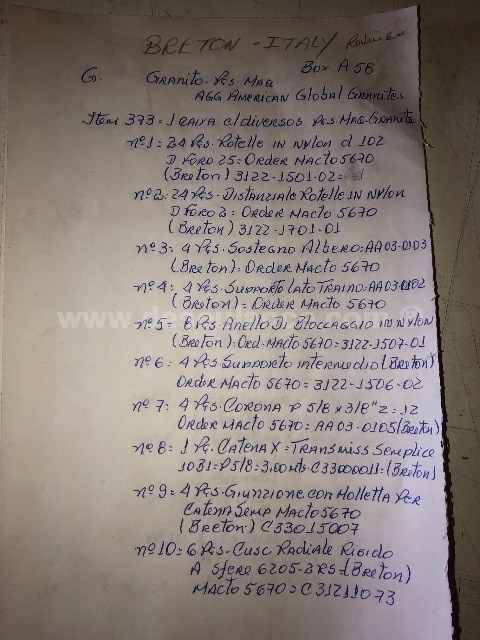 BRETON - ITALY
Box A 58
G. GRANITO - Pçs. MAQ.
AGG AMERICAN Global GRANITES
Item 373 = 1 CAIXA c/ DIVERSOS Pçs. MAQ. GRANITO
nº 1 = 24 Pçs. ROTELLE IN NYLON d 102
D FORO 25 = ORDER MACTO 5670
(Breton) 3122-1501-02=
nº 2 = 24 Pçs - DISTANZIALE ROTELLE IN NYLON
D FORO 2 = ORDER MACTO 5670
(Breton) 3122-1701-01
nº 3 = 4 Pçs. SOSTEGNO ALBERO = AA03-0103
(Breton) = ORDER MACTO 5670
nº 4 = 4 Pçs. SUPPORTO LATO TRAINO = AA03-0102
(Breton) = ORDER MACTO 5670
nº 5 = 8 Pçs. ANELLO DI BLOCCAGGIO IN NYLON
(Breton) = Ord. MACTO 5670 = 3122-1507-01
nº 6 = 4 Pçs. Supporto intermedio (Breton)
ORDER MACTO 5670 = 3122-1506-02
nº 7 = 4 Pçs. CORONA P 5/8 x 3/8" Z = 12
ORDER MACTO 5670 = AA03-0105 (Breton)
nº 8 = 1 Pç. CATENA X = TRANSMISS SEMPLICE
10B1 = P 5/8 = 3,00 mts. C33000011 = (Breton)
nº 9 = 4 Pçs. GIUNZIONE CON MOLLETTA PER
CATENA SEMP MACTO 5670
(Breton) C33015007
nº 10 = 6 Pçs. CUSC RADIALE RIGIDO
A SFERE 6205-2RS = (Breton)
MACTO 5670 = C31211073